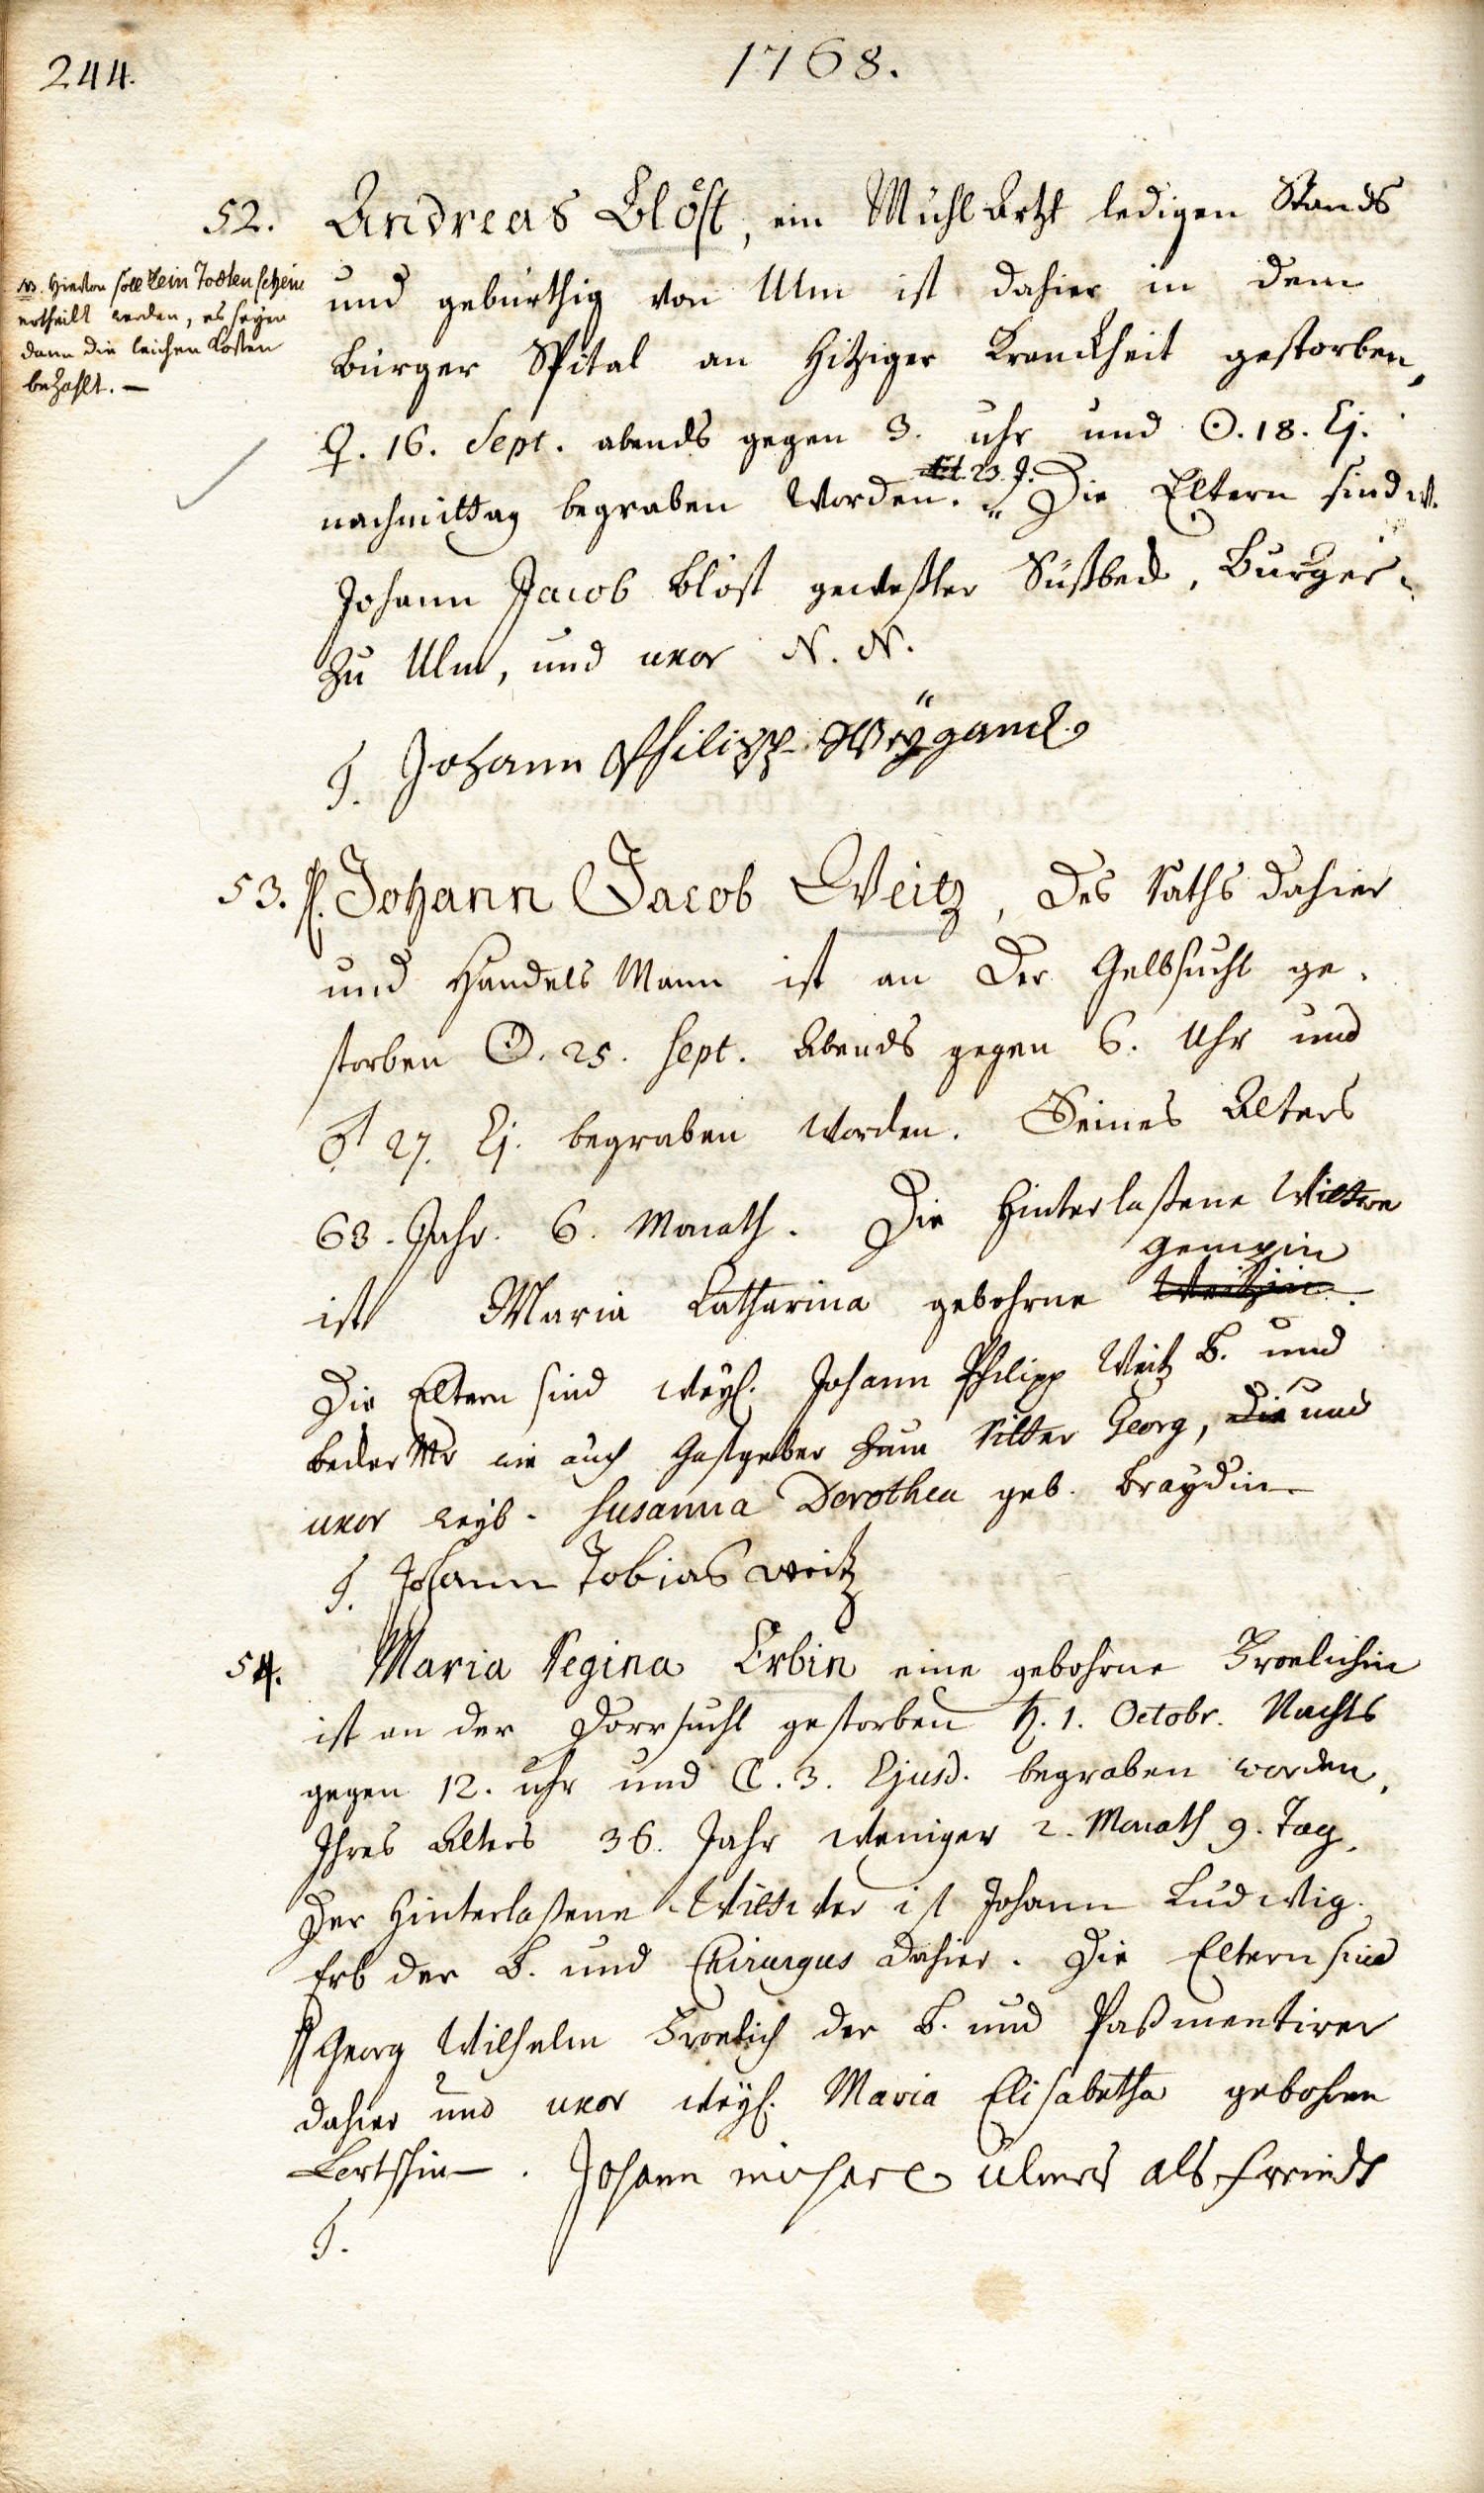 244.
1768.
52. Andreas Blöst, ein Mühl Artzt ledigen Stands
und gebürthig von Ulm ist dahier in dem
Bürger Spital an hitziger Kranckheit gestorben,
♀. 16. Sept. abends gegen 3. uhr und ☉. 18. Ej.
nachmittag begraben worden. æt. 23. J. Die Eltern sind w.
Johann Jacob Blöst gewesster Süßbeck, Burger
zu Ulm, und uxor N. N.
NB. Hievon soll kein Todten schein
ertheilt werden, es seyen
dann die leichen Kosten
bezahlt. —
T. Johann Philipp Weÿgand
53. H. Johann Jacob Weitz, des Raths dahier
und Handels Mann ist an der Gelbsucht ge-
storben ☉. 25. Sept. Abends gegen 6. Uhr und
♂ 27. Ej. begraben worden. Seines Alters
63. Jahr. 6. Monath. Die hinterlaßene Wittwe
gempin
ist Maria Catharina gebohrne Weitzin.
Die Eltern sind weyl. Johann Philipp Weitz B. und
Becker Mr wie auch Gastgeber zum Ritter Georg, die und
uxor weyl. Susanna Dorothea geb. Braydin
T. Johann Tobias Weitz
54. Maria Regina Erbin eine gebohrne Froelichin
ist an der Dörrsucht gestorben ♄. 1. Octobr. Nachts
gegen 12. uhr und ☾. 3. Ejusd. begraben worden,
Ihres Alters 36. Jahr weniger 2. Monath 9. Tag.
Der hinterlaßene Wittwer ist Johann Ludwig
Erb der B. und Chirurgus dahier. Die Eltern sind
Georg Wilhelm Froelich der B. und Paßmentirer
dahier und uxor weyl. Maria Elisabetha gebohrne
. Johann michael ulmer als freindt
T.